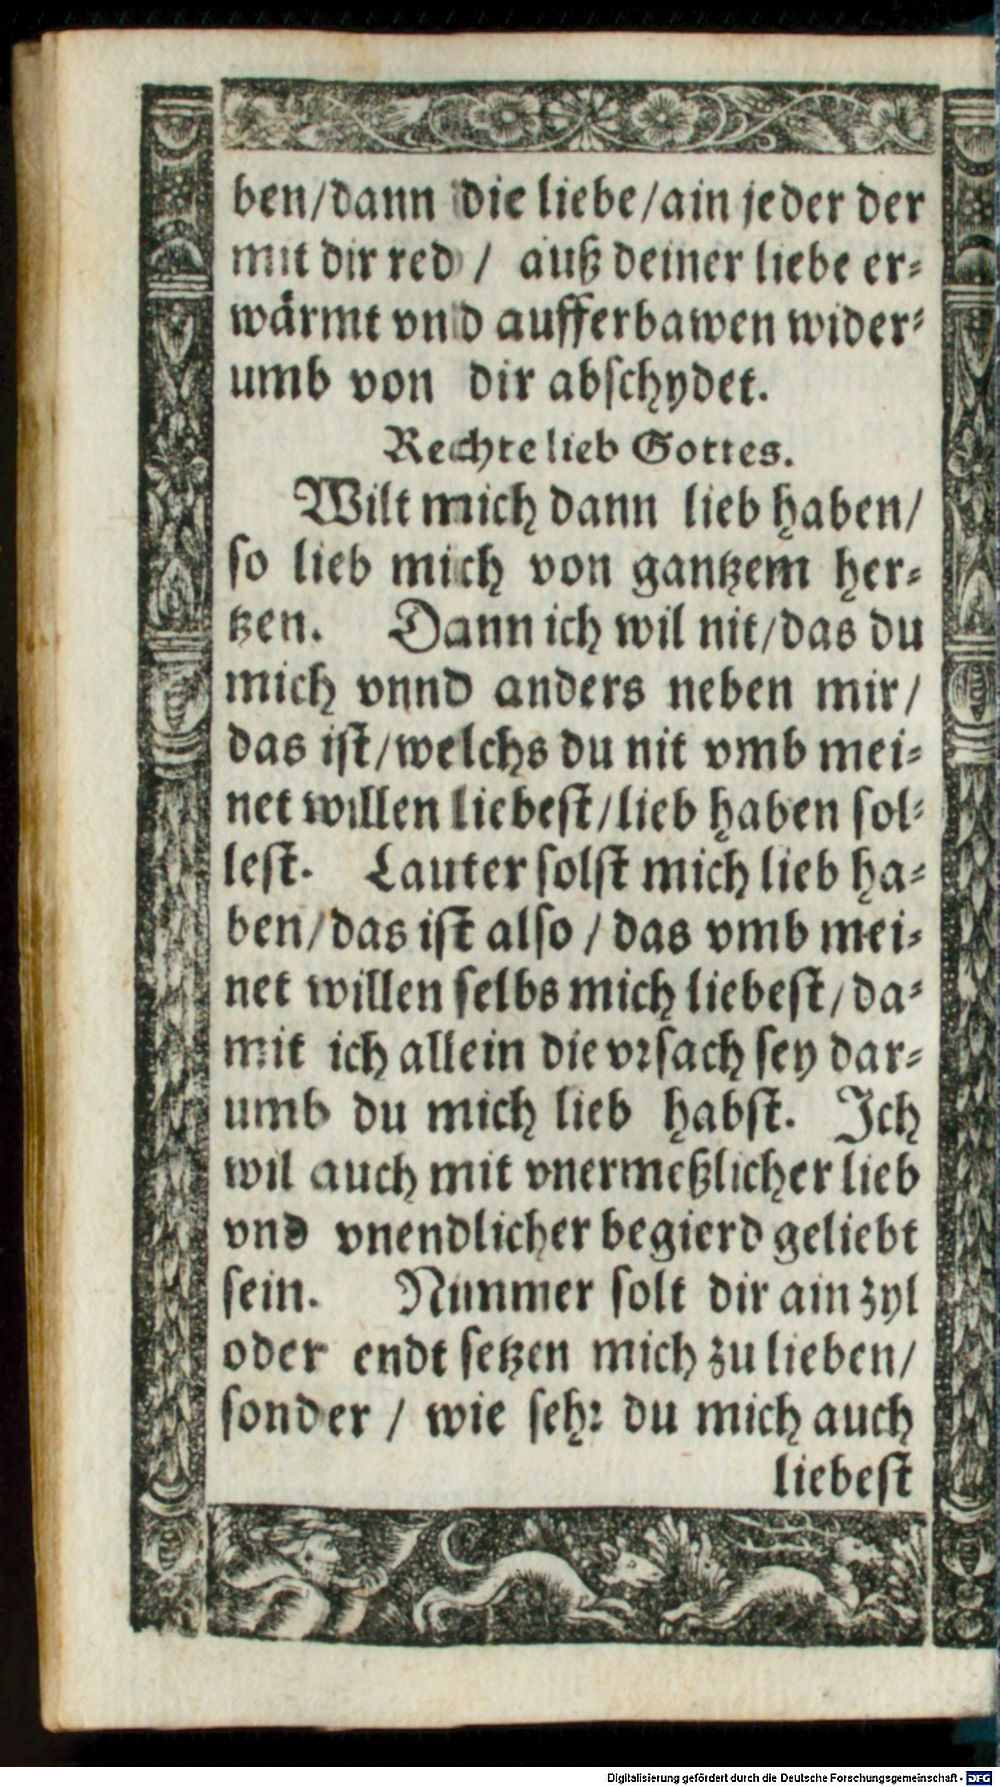 ben/dann die liebe/ain jeder der
mit dir red / auß deiner liebe er⸗
wärmt vnd aufferbawen wider⸗
umb von dir abschydet.
Rechte lieb Gottes.
Wilt mich dann lieb haben/
so lieb mich von gantzem her⸗
tzen. Dann ich wil nit/das du
mich vnnd anders neben mir/
das ist/welchs du nit vmb mei⸗
net willen liebest/lieb haben sol⸗
lest. Lauter solst mich lieb ha⸗
ben/das ist also / das vmb mei⸗
net willen selbs mich liebest/da⸗
mit ich allein die vrsach sey dar⸗
umb du mich lieb habst. Ich
wil auch mit vnermeßlicher lieb
vnd vnendlicher begierd geliebt
sein. Nimmer solt dir ain zyl
oder endt setzen mich zu lieben/
sonder / wie sehr du mich auch
liebest
Digitalisierung gefördert durch die Deutsche Forschungsgemeinschaft - DFG